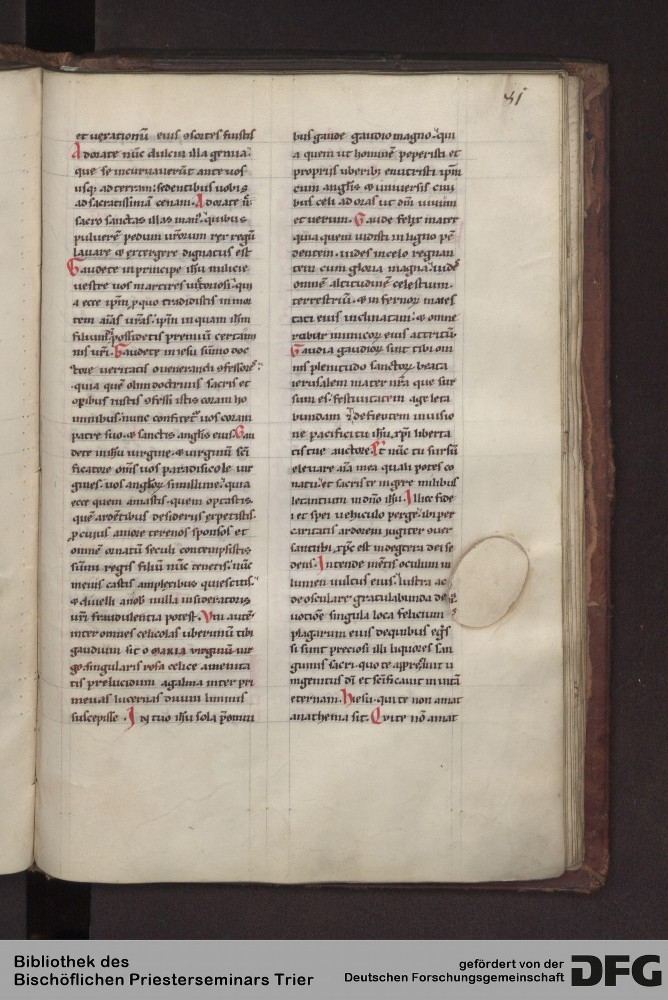 41
et uerationū eius ꝯsortes fuistis
Adorate nūc dulcia illa genua:
que se incuruauerūt ante uos
usq; ad terram: sedentibus uobis
ad sacratissimā cenam. Adorate
sacro sanctas illas man᷒: quibus
puluerē pedum urorum rex regū
lauare & extergere dignatus est
Gaudete in principe ihsu milicie
uestre uos martires qui
a ecce ipm̄ ꝓ quo tradidistis in mor
tem aīas urās. ipm̄ in quam ihm
filium possidetis premiū certami
nis uri. Gaudete in iesu sūmo doc
tore ueritatis o uenerandi ꝯfessores
quia quē olim doctrinis sacris et
opibus iustis ꝯfessi istis coram ho
minibus: nunc confitet᷒ uos coram
patre suo. & sanctis anglis eius. Gau
dete in ihu uirgine. & uirginū scī
ficatore om̄s uos paradisicole uir
gines. uos anglor simillime: quia
ecce quem amastis. quem optastis.
quē ardētibus desideriis expetistis.
ꝓ cuius amore terenos sponsos et
omnē ornatū seculi contempsistis
sūmi regis filiū nūc tenetis. nūc
meius castis amplexibus quiescitis.
& diuelli a nob nulla insidiatoris
uri fraudulentia potest. Vnū autē
inter omnes celicolas uberimū tibi
gaudium sit o maria uirginū uir
go. singularis rosa celice ameni ta
tis prelucidum agalma inter pri
meuas lucernas diuini luminis
suscepisse. In tuo ihsu sola p̄emin
bus gaude gaudio magno: qui
a quem ut hominē peperisti et
propriis uberib; enutristi ipm̄
cum anglis & uniuersis ciui
bus celi adoras ut dm̄ uiuum
et uerum. Gaude felix mater
quia quem uidisti in ligno pē
dentem. uides in celo regnan
tem cum gloria magna. uides
omnē altitudinē celestium.
terrestriū. & infernor maies
tati eius inclinatam: & omne
robur inimicor eius attritū.
Gaudia gaudior sint tibi om
nis plenitudo sanctor. beata
ierusalem mater nrā que sur
sum es. festiuitatem age leta
bundam in uisio
ne pacifici tui ihu. xp̄i liberta
tis tue auctore. Et nūc tu sursū
eleuare aīa mea quali potes co
natu. et sacris te ingere milibus
letantium in dn̄o ihu. Illuc fide
i et spei uehiculo perge. ibi per
caritatis ardorem iugiter ꝯuer
sant ubi. xp̄c est in dextera dei se
dens. Intende mētis oculum in
lumen uultus eius. lustra ac
deosculare gratulabunda de
uotiōe singula loca felicium
plagarum eius de quibus egs̄
si sunt preciosi illi liquores san
guinis sacri. quo te appreciauit u
nigenitus dī et scīficauit in uitā
eternam. Ihesu. qui te non amat
anathema sit. Qui te nō amat
Bibliothek des
Bischöflichen Priesterseminars Trier
gefördert von der
Deutschen Forschungsgemeinschaft
DFG